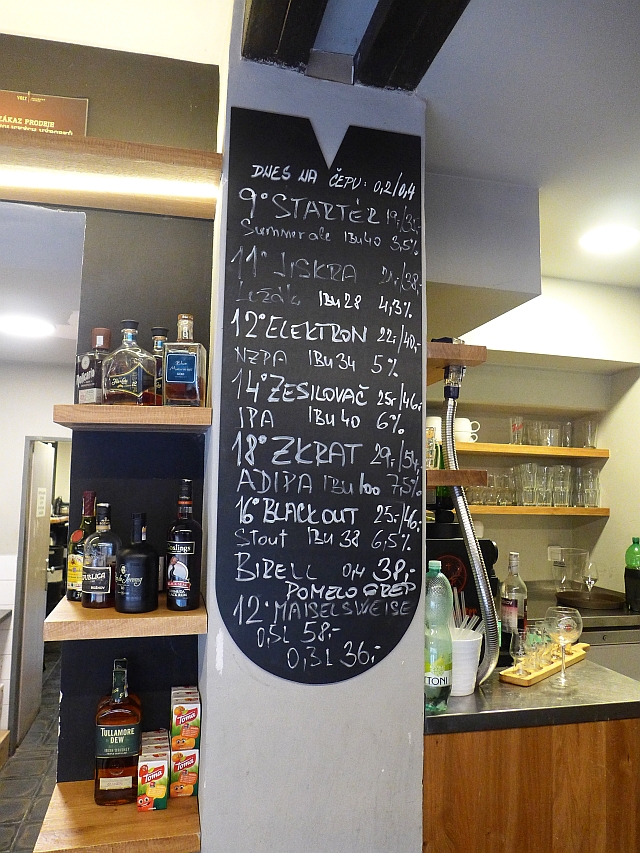 ZÁKAZ PRODEJE
DNES NA ČEPU: 0,2/0,4
9° STARTÉR 19,-/35,-
Summer ale IBU 40 3,5%
11° JISKRA 21,-/38,-
Ležák IBU 28 4,3%
12° ELEKTRON 22,-/40,-
NZPA IBU 34 5%
14° ZESILOVAČ 25,-/46,-
IPA IBU 40 6%
18° ZKRAT 29,-/54,-
ADIPA IBU 100 7,5%
16° BLACKOUT 25,-/46,-
Stout IBU 38 6,5%
BIRELL 0,4 38,-
POMELO GREP
12° MAISELSWEISE
0,5L 58,-
0,3L 36,-
TULLAMORE
DEW
Toma
Toma
Toma